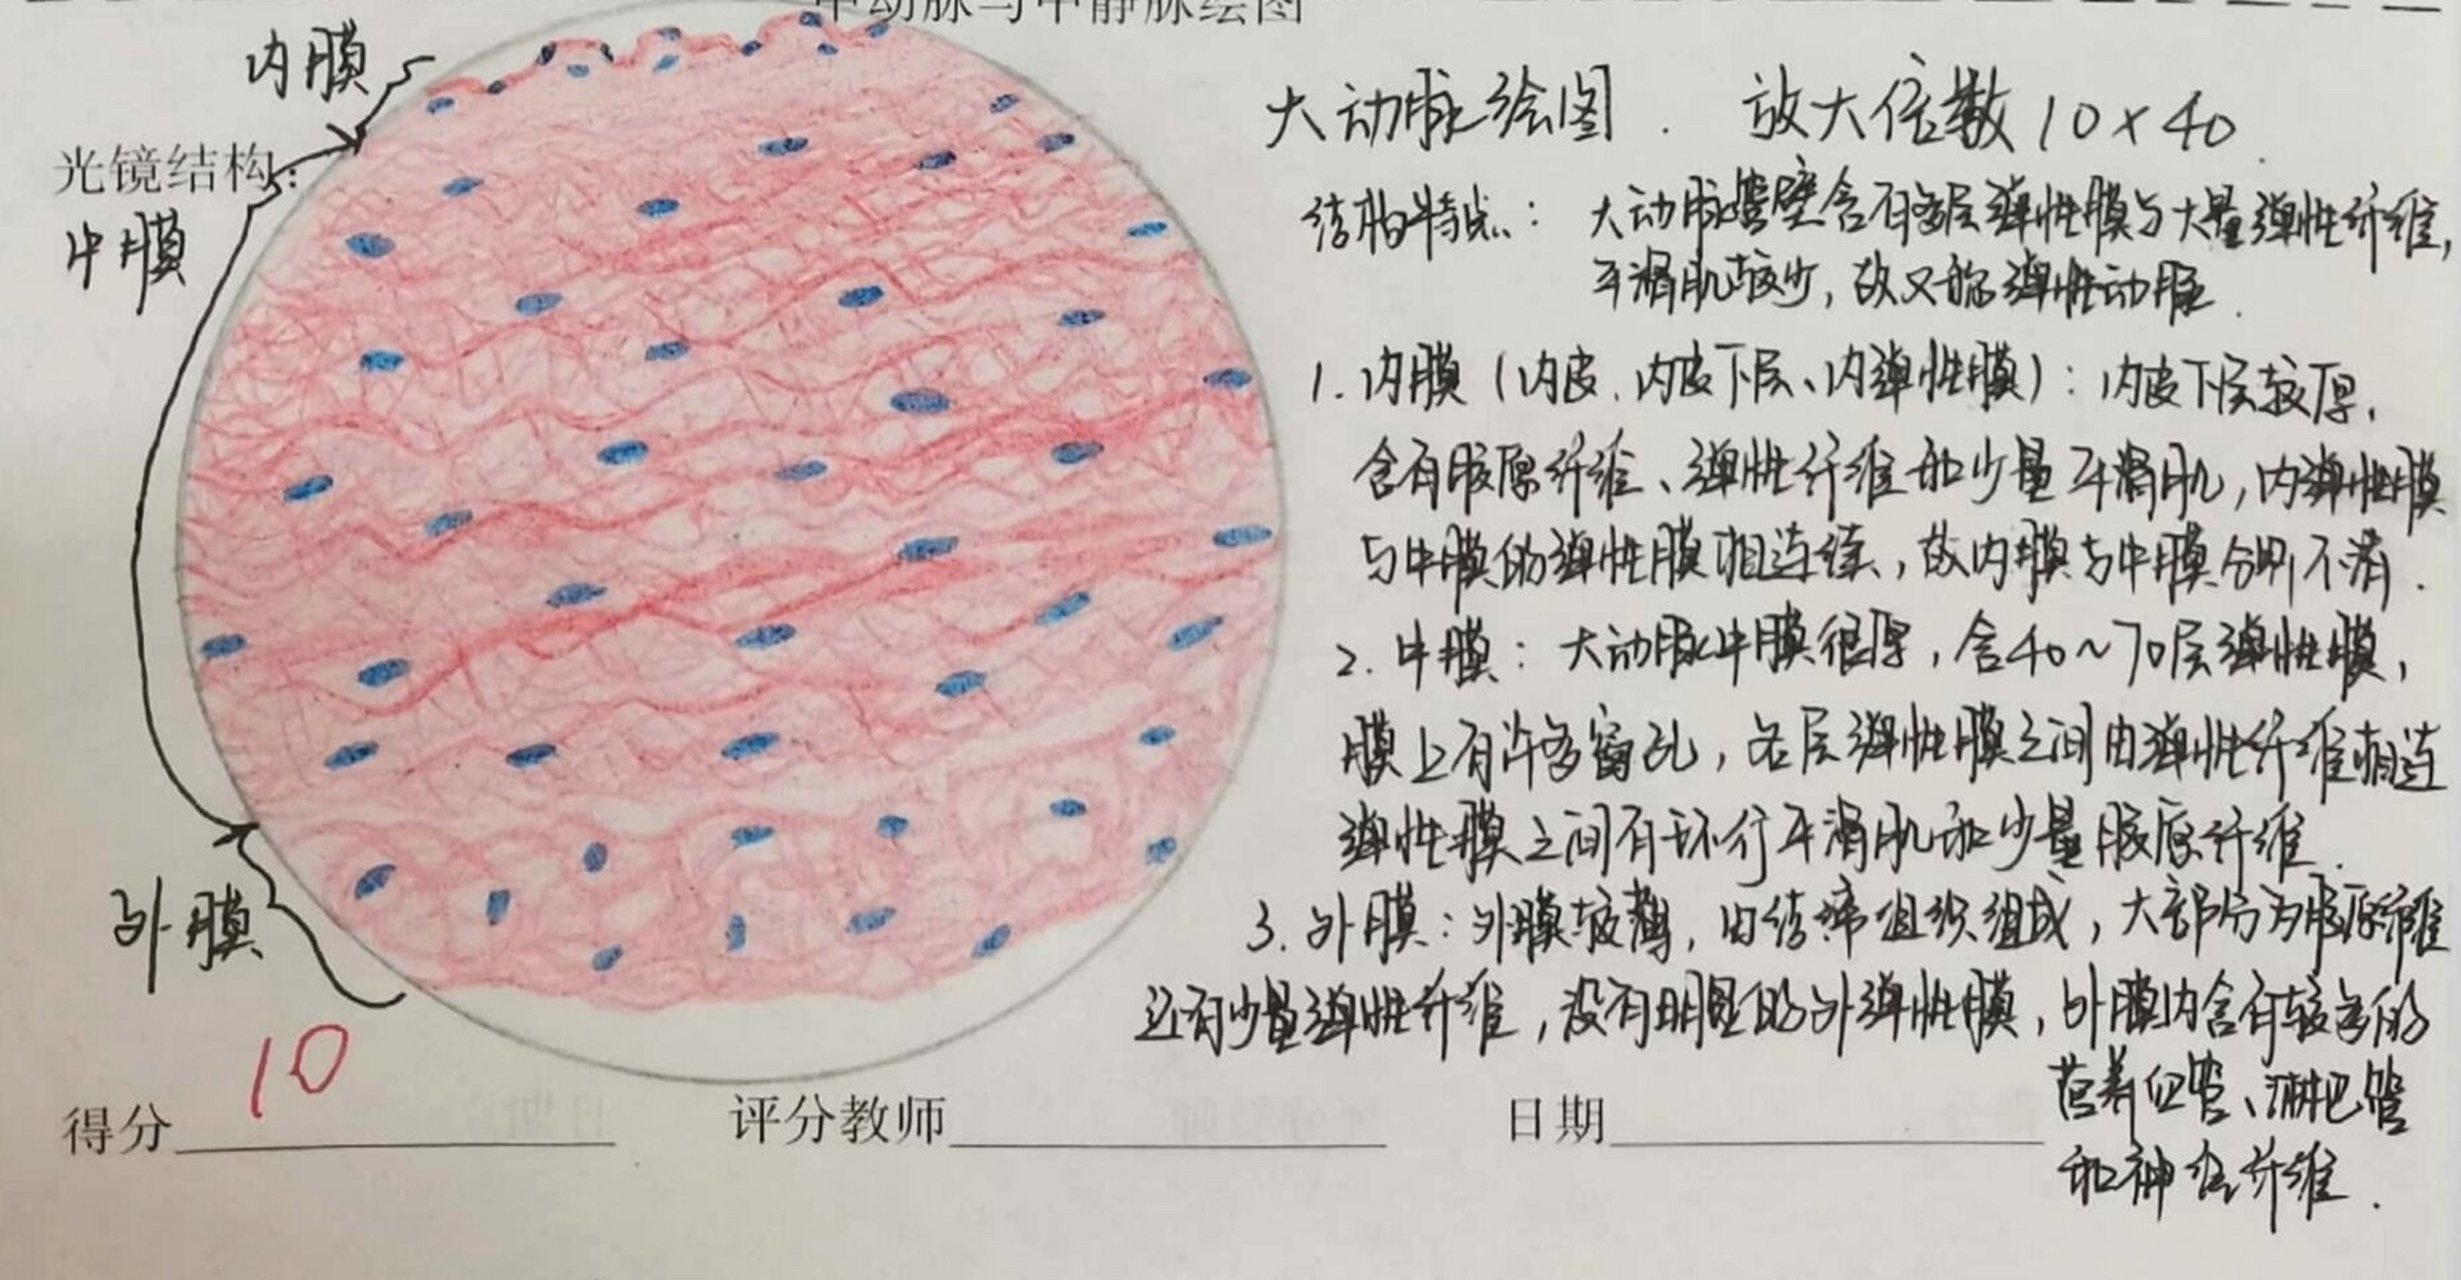 中动脉与中静脉绘图
内膜
光镜结构:
中膜
外膜
大动脉绘图. 放大倍数10×40
结构特点: 大动脉管壁含有多层弹性膜与大量弹性纤维,
平滑肌较少,故又称弹性动脉.
1. 内膜(内皮、内皮下层、内弹性膜): 内皮下层较厚,
含有胶原纤维、弹性纤维和少量平滑肌,内弹性膜
与中膜的弹性膜相连续,故内膜与中膜分界不清.
2. 中膜: 大动脉中膜很厚,含40~70层弹性膜,
膜上有许多窗孔,各层弹性膜之间由弹性纤维相连
弹性膜之间有环行平滑肌和少量胶原纤维.
3. 外膜: 外膜较薄,由结缔组织组成,大部分为胶原纤维
还有少量弹性纤维,没有明显的外弹性膜,外膜内含有较多的
营养血管、淋巴管
和神经纤维.
10
得分 评分教师 日期